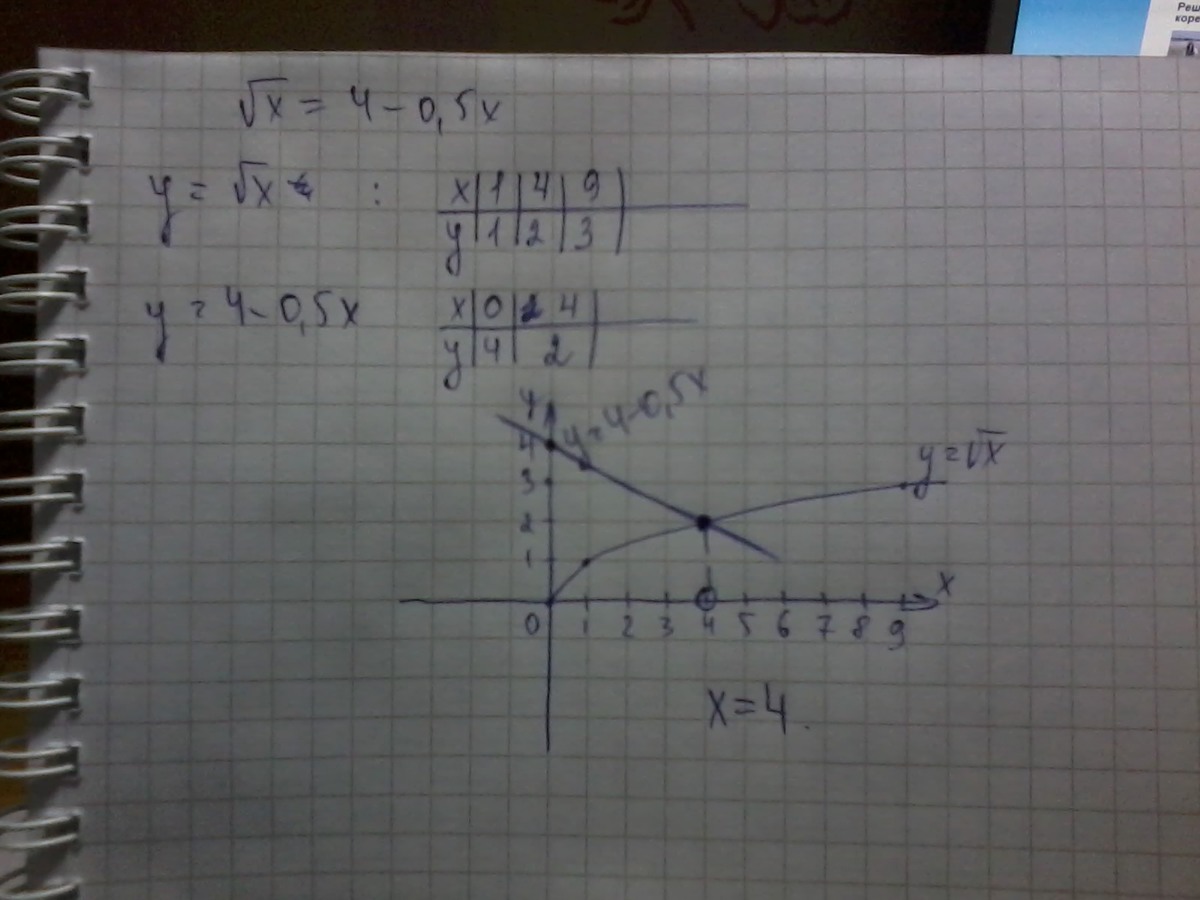 Реш
коре
√x = 4 - 0,5x
y = √x : x | 1 | 4 | 9 |
y | 1 | 2 | 3 |
y = 4 - 0,5x x | 0 | 4 |
y | 4 | 2 |
y
y = 4 - 0,5x
4
y = √x
3
2
1
x
0 1 2 3 4 5 6 7 8 9
x = 4.